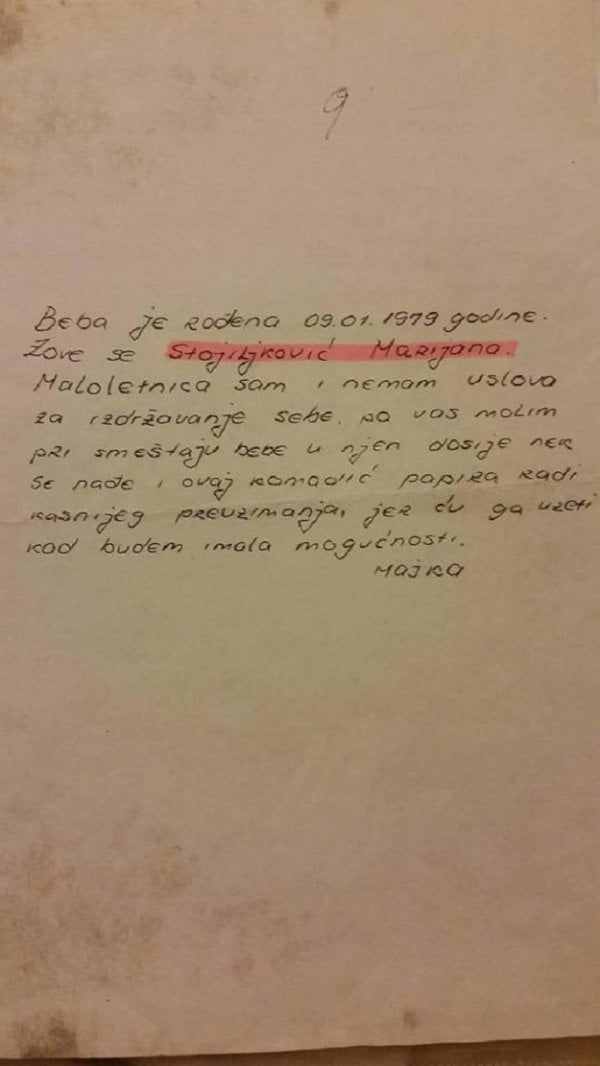 9
Beba je rođena 09.01.1979 godine.
Zove se Stojiljković Marijana.
Maloletnica sam i nemam uslova
za izdržavanje sebe, pa vas molim
pri smeštaju bebe u njen dosije nek
se nađe i ovaj komadić papira radi
kasnijeg preuzimanja, jer ću ga uzeti
kad budem imala mogućnosti.
Majka